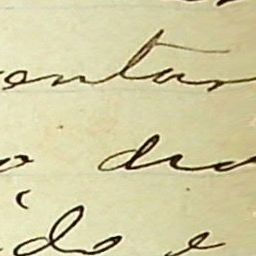 entar
o dia
ido e